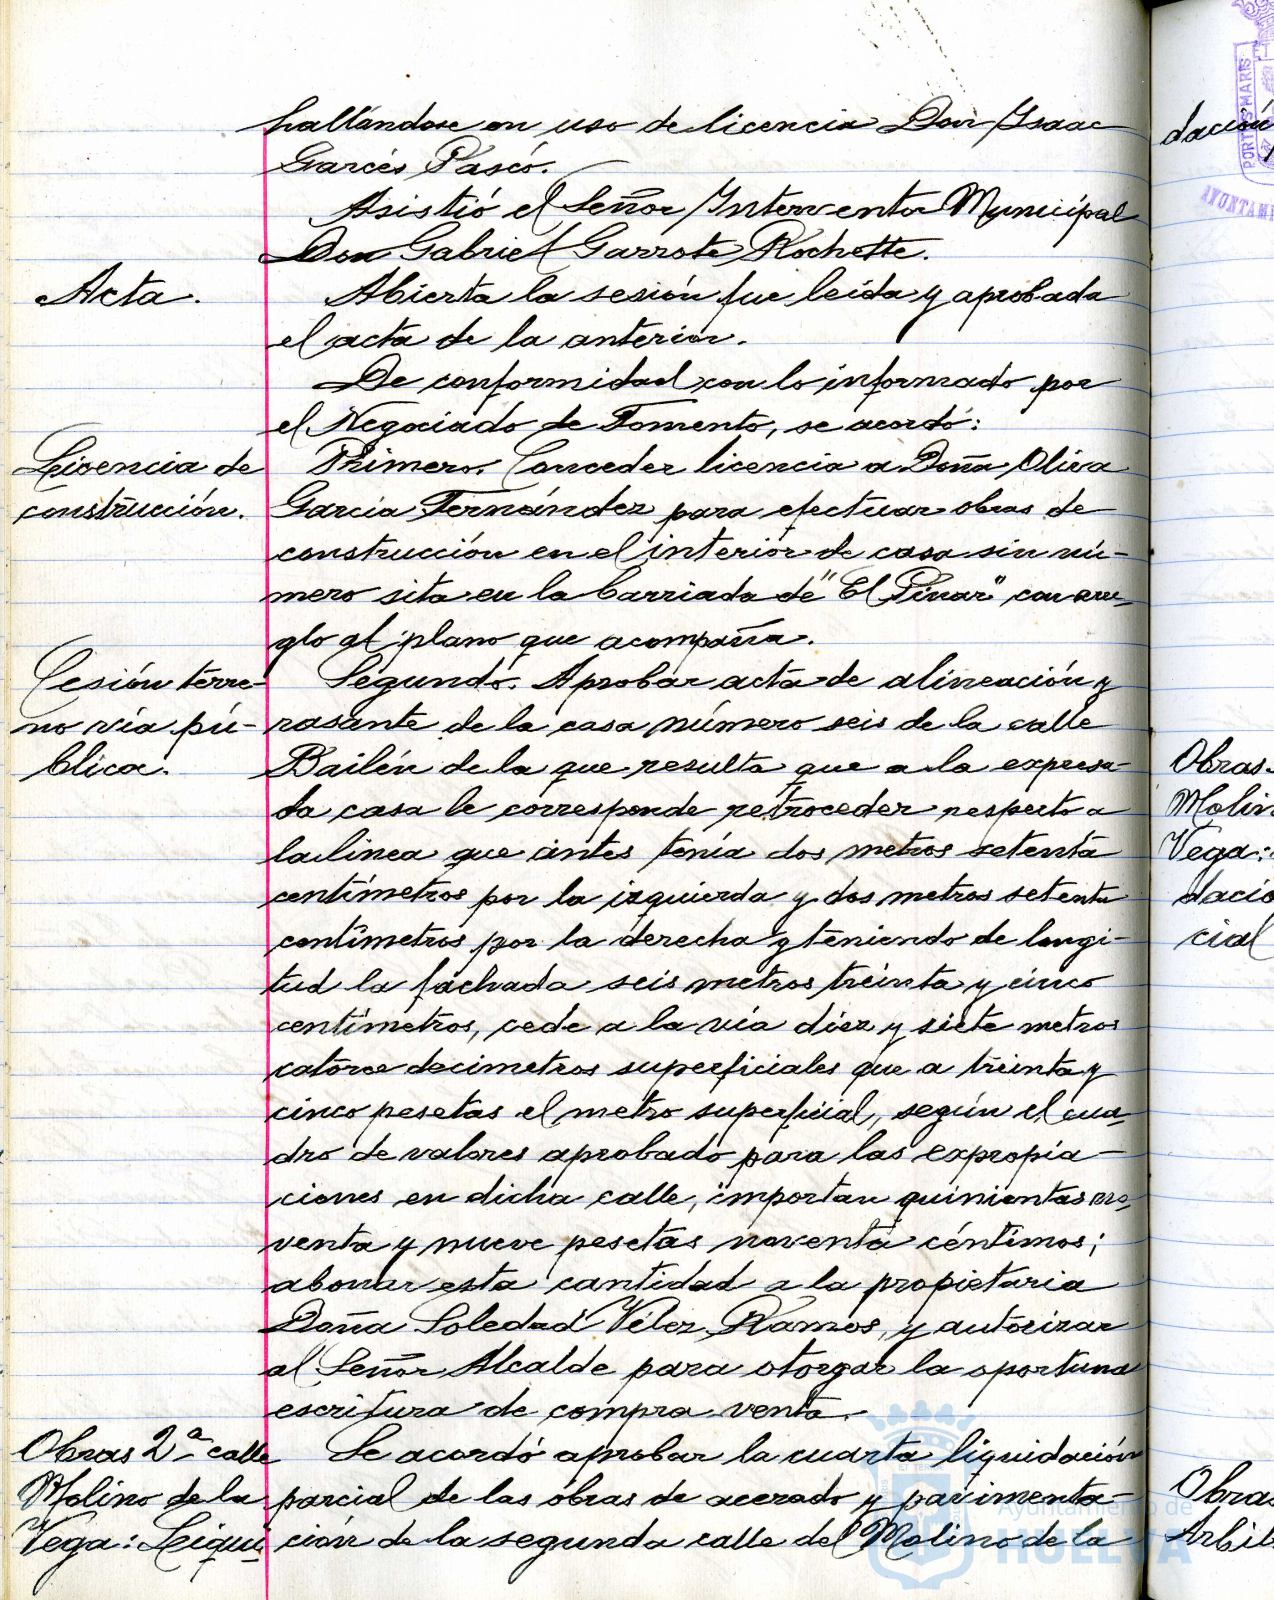 hallándose en uso de licencia Don Isaac
Garcés Pascó.
Asistió el Señor Interventor Municipal
Don Gabriel Garrote Rochette.
Acta.
Abierta la sesión fue leida y aprobada
el acta de la anterior.
De conformidad con lo informado por
el Negociado de Fomento, se acordó:
Licencia de
construcción.
Primero. Conceder licencia a Doña Oliva
Garcia Fernández para efectuar obras de
construcción en el interior de casa sin nú-
mero sita en la barriada de "El Pinar" con arre-
glo al plano que acompaña.
Cesión terre-
no via pú-
blica.
Segundo. Aprobar acta de alineación y
rasante de la casa número seis de la calle
Bailén de la que resulta que a la expresa-
da casa le corresponde retroceder respecto a
la linea que antes tenía dos metros setenta
centímetros por la izquierda y dos metros setenta
centímetros por la derecha y teniendo de longi-
tud la fachada seis metros treinta y cinco
centímetros, cede a la via diez y siete metros
catorce decimetros superficiales que a treinta y
cinco pesetas el metro superficial, según el cua-
dro de valores aprobado para las expropia-
ciones en dicha calle, importan quinientas no-
venta y nueve pesetas noventa céntimos;
abonar esta cantidad a la propietaria
Doña Soledad Vélez Ramos, y autorizar
al Señor Alcalde para otorgar la oportuna
escritura de compra venta.
Obras 2ª calle
Molino de la
Vega: Liqui
Se acordó aprobar la cuarta liquidación
parcial de las obras de acerado y pavimenta-
ción de la segunda calle del Molino de la
dación
Obras
Molin
Vega:
dació
cial
Obras
Arbit
PORTUS MARIS
AYUNTAMI
Ayuntamiento de
HUELVA